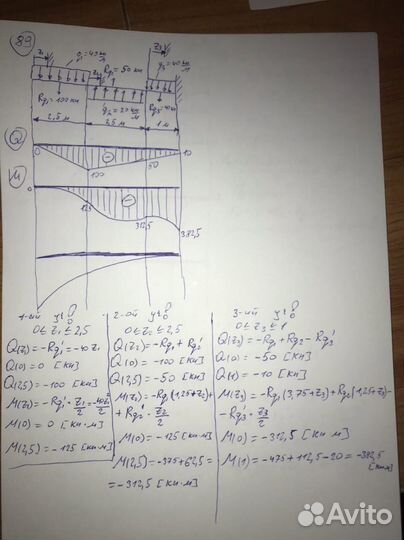 89
z₁
q₁=40 кн/м
z₂
Rq₂=50 кн
z₃
q₃=40 кн/м
Rq₁=100 кн
q₂=20 кн/м
Rq₃=40 кн
2,5 м
2,5 м
1 м
Q
0
⊖
100
50
10
M
0
125
⊖
312,5
382,5
1-ый уч.
0≤z₁≤2,5
Q(z₁)=-Rq₁'=-40z₁
Q(0)=0 [кн]
Q(2,5)=-100 [кн]
M(z₁)=-Rq₁'·z₁/2=-40z₁²/2
M(0)=0 [кн·м]
M(2,5)=-125 [кн·м]
2-ой уч.
0≤z₂≤2,5
Q(z₂)=-Rq₁+Rq₂'
Q(0)=-100 [кн]
Q(2,5)=-50 [кн]
M(z₂)=-Rq₁(1,25+z₂)+
+Rq₂'·z₂/2
M(0)=-125 [кн·м]
M(2,5)=-375+62,5=
=-312,5 [кн·м]
3-ий уч.
0≤z₃≤1
Q(z₃)=-Rq₁+Rq₂-Rq₃'
Q(0)=-50 [кн]
Q(1)=-10 [кн]
M(z₃)=-Rq₁(3,75+z₃)+Rq₂(1,25+z₃)-
-Rq₃'·z₃/2
M(0)=-312,5 [кн·м]
M(1)=-475+112,5-20=-382,5
[кн·м]
Avito